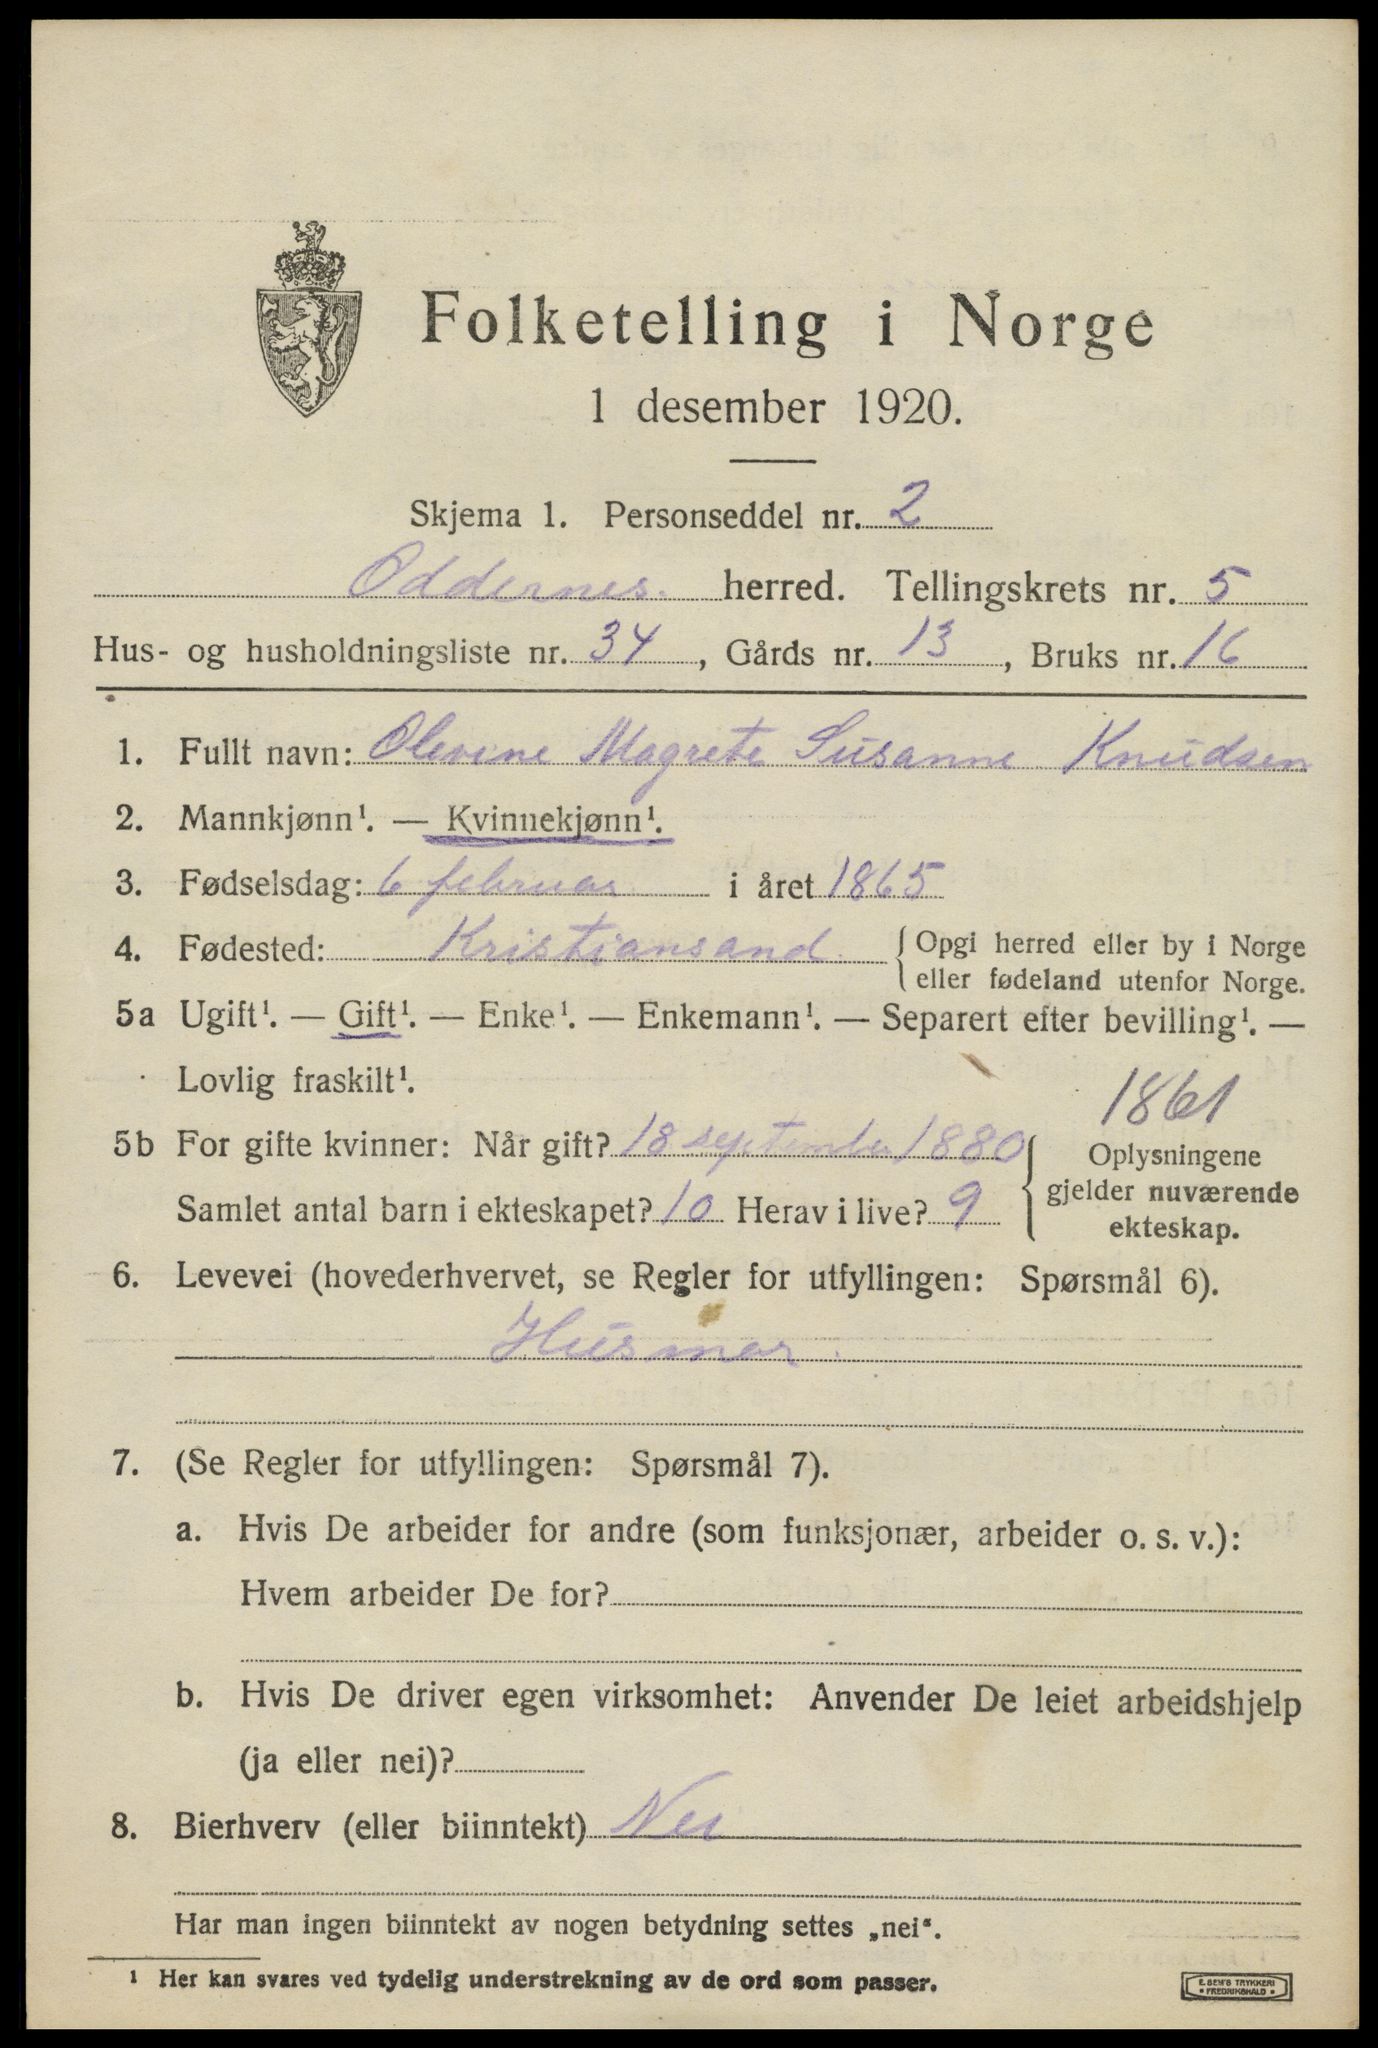 Folketelling i Norge
1 desember 1920.
Skjema 1. Personseddel nr. 2
Oddernes. herred. Tellingskrets nr. 5
Hus- og husholdningsliste nr. 34, Gårds nr. 13, Bruks nr. 16
1. Fullt navn: Olevine Magrete Susanne Knudsen
2. Mannkjønn¹. — Kvinnekjønn¹.
3. Fødselsdag: 6 februar i året 1865
4. Fødested: Kristiansand. { Opgi herred eller by i Norge
eller fødeland utenfor Norge.
5a Ugift¹. — Gift¹. — Enke¹. — Enkemann¹. — Separert efter bevilling¹. —
Lovlig fraskilt¹.
1861
5b For gifte kvinner: Når gift? 18 september 1880 { Oplysningene
gjelder nuværende
ekteskap.
Samlet antal barn i ekteskapet? 10 Herav i live? 9
6. Levevei (hovederhvervet, se Regler for utfyllingen: Spørsmål 6).
Husmor.
7. (Se Regler for utfyllingen: Spørsmål 7).
a. Hvis De arbeider for andre (som funksjonær, arbeider o. s. v.):
Hvem arbeider De for?
b. Hvis De driver egen virksomhet: Anvender De leiet arbeidshjelp
(ja eller nei)?
8. Bierhverv (eller biinntekt) Nei
Har man ingen biinntekt av nogen betydning settes „nei“.
1 Her kan svares ved tydelig understrekning av de ord som passer.
E. SEM'S TRYKKERI
• FREDRIKSHALD •